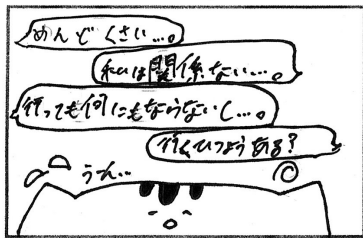 めんどくさい…。
私は関係ない…。
行っても何にもならないし…。
行くひつようある?
うん…